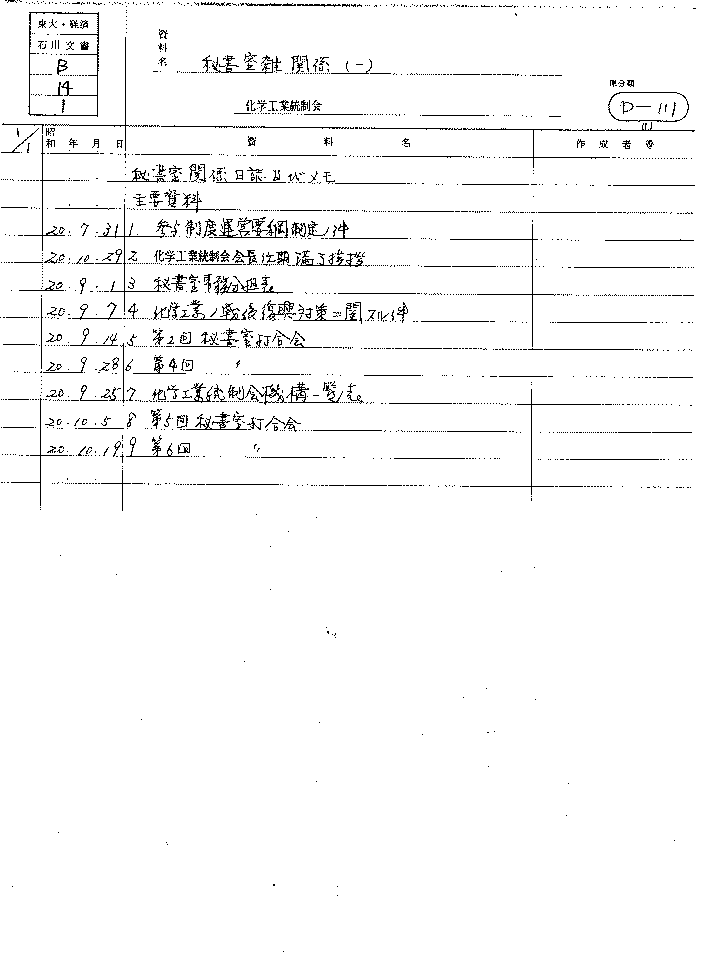 東大・経済
石川文書
B
14
1
資料名
秘書室雑関係(一)
化学工業統制会
原分類
D-111
(1)
1/1
昭和 年 月 日 資料名 作成者等
秘書室関係日誌及びメモ
主要資料
20.7.31 1 参与制度運営要綱制定ノ件
20.10.29 2 化学工業統制会会長任期満了挨拶
20.9.1 3 秘書室事務分担表
20.9.7 4 化学工業ノ戦後復興対策ニ関スル件
20.9.14 5 第2回秘書室打合会
20.9.28 6 第4回 〃
20.9.25 7 化学工業統制会機構一覧表。
20.10.5 8 第5回秘書室打合会
20.10.19 9 第6回 〃